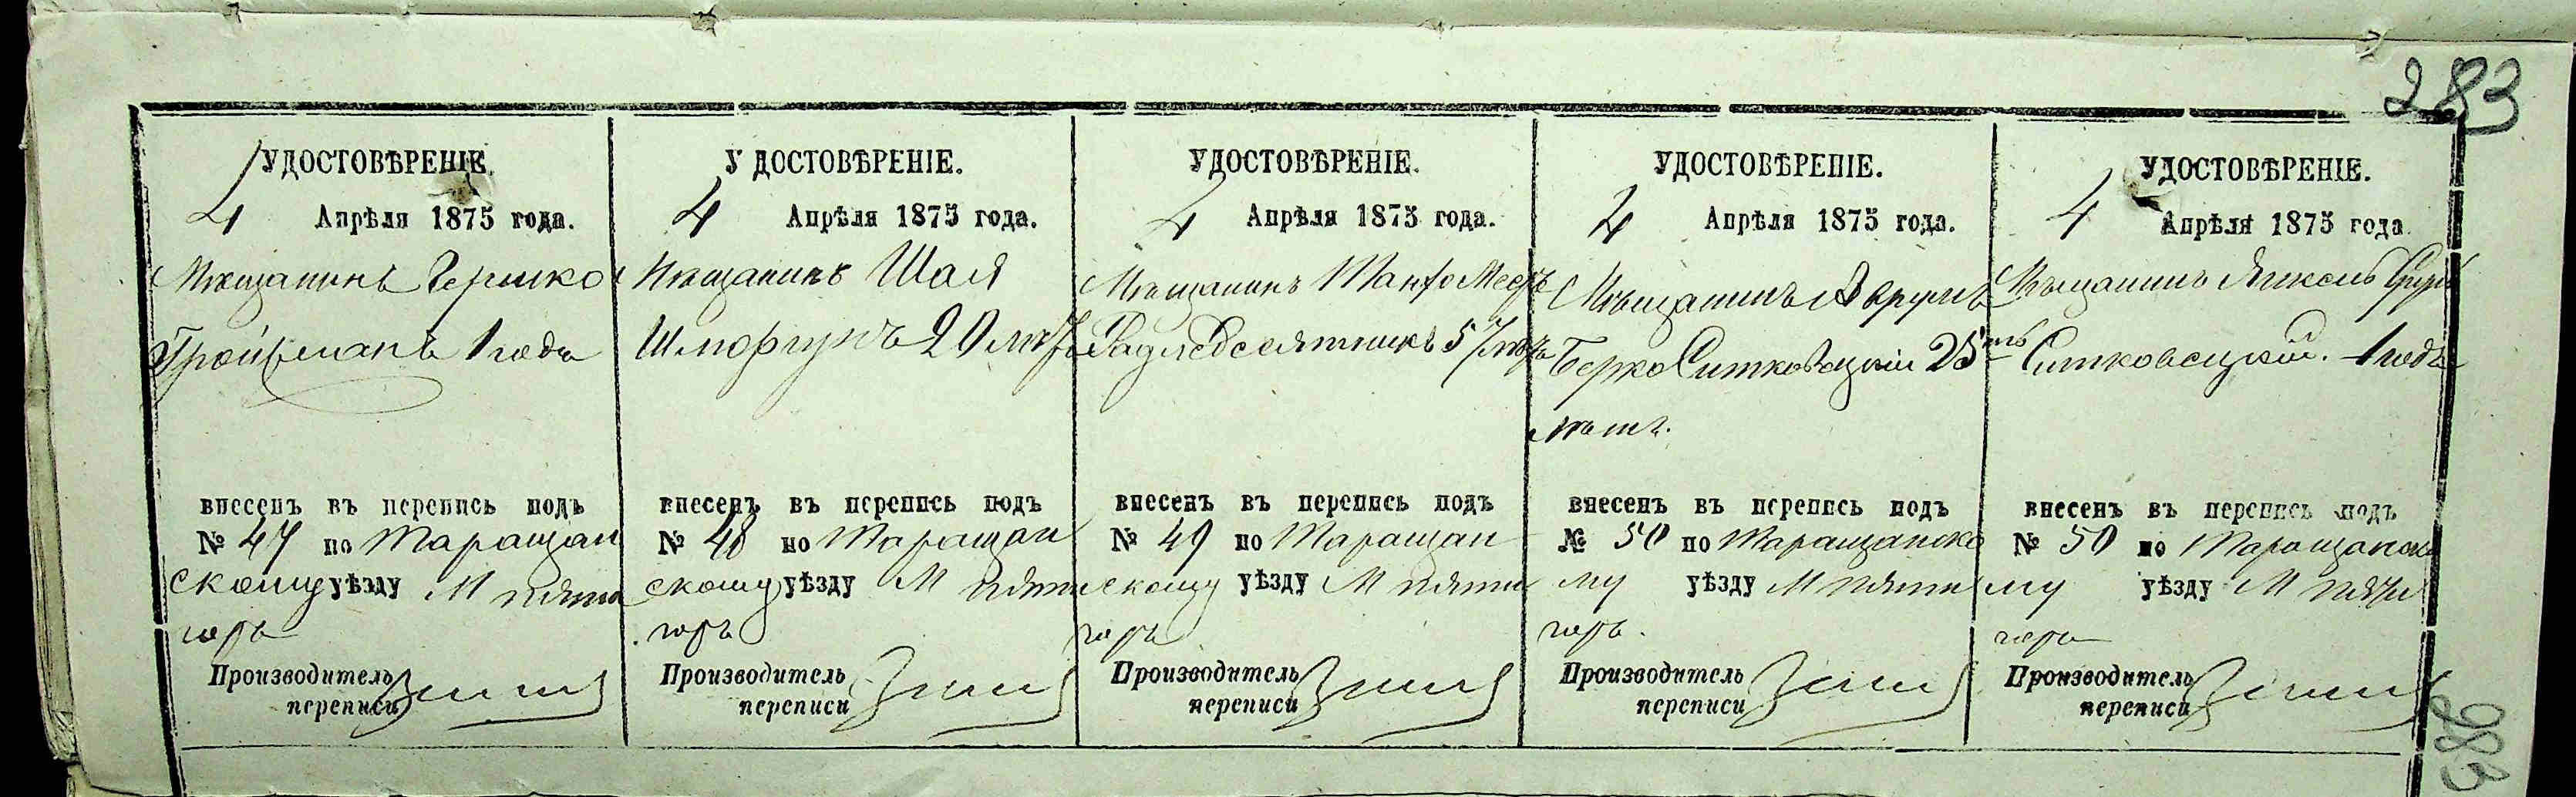 283
УДОСТОВѢРЕНІЕ.
4 Апрѣля 1875 года.
Мѣщанинъ Гершко
Гройсманъ 1 года
внесенъ въ перепись подъ
№ 47 по Таращан
скому уѣзду М пяти
горъ
Производитель
переписи
У ДОСТОВѢРЕНІЕ.
4 Апрѣля 1875 года.
Мѣщанинъ Шая
Шморгунъ 20 лѣтъ
внесенъ въ перепись подъ
№ 48 по Таращан
скому уѣзду М пяти
горъ
Производитель
переписи
УДОСТОВѢРЕНІЕ.
4 Апрѣля 1875 года.
Мѣщанинъ
57 лѣтъ
внесенъ въ перепись подъ
№ 49 по Таращан
скому уѣзду М пяти
горъ
Производитель
переписи
УДОСТОВѢРЕНІЕ.
4 Апрѣля 1875 года.
Мѣщанинъ
Берко Ситковецкій 25
лѣтъ.
внесенъ въ перепись подъ
№ 50 по Таращанско
му уѣзду М пяти
горъ.
Производитель
переписи
УДОСТОВѢРЕНІЕ.
4 Апрѣля 1875 года
Мѣщанинъ Янкель Сруль
Ситковецкій. 1 года
внесенъ въ перепись подъ
№ 50 по Таращанско
му уѣзду М пяти
горъ
Производитель
переписи
283